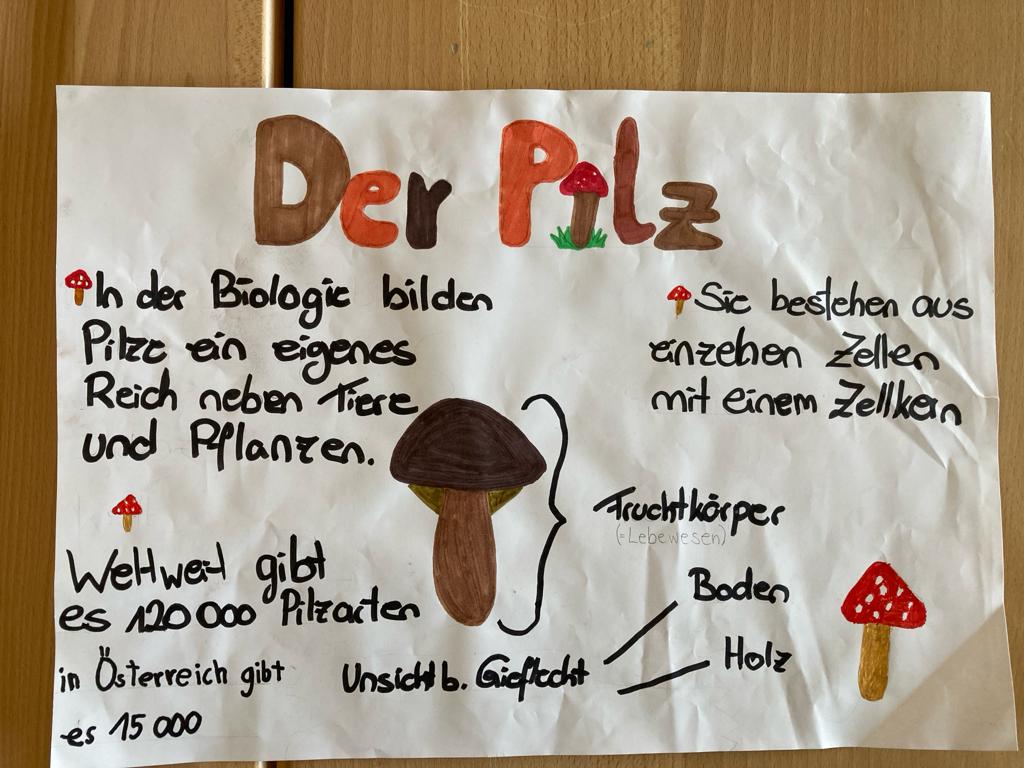 Der Pilz
In der Biologie bilden
Pilze ein eigenes
Reich neben Tiere
und Pflanzen.
Sie bestehen aus
einzelnen Zellen
mit einem Zellkern
Weltweit gibt
es 120 000 Pilzarten
in Österreich gibt
es 15 000
Fruchtkörper
(=Lebewesen)
Unsichtb. Gieflecht
Boden
Holz